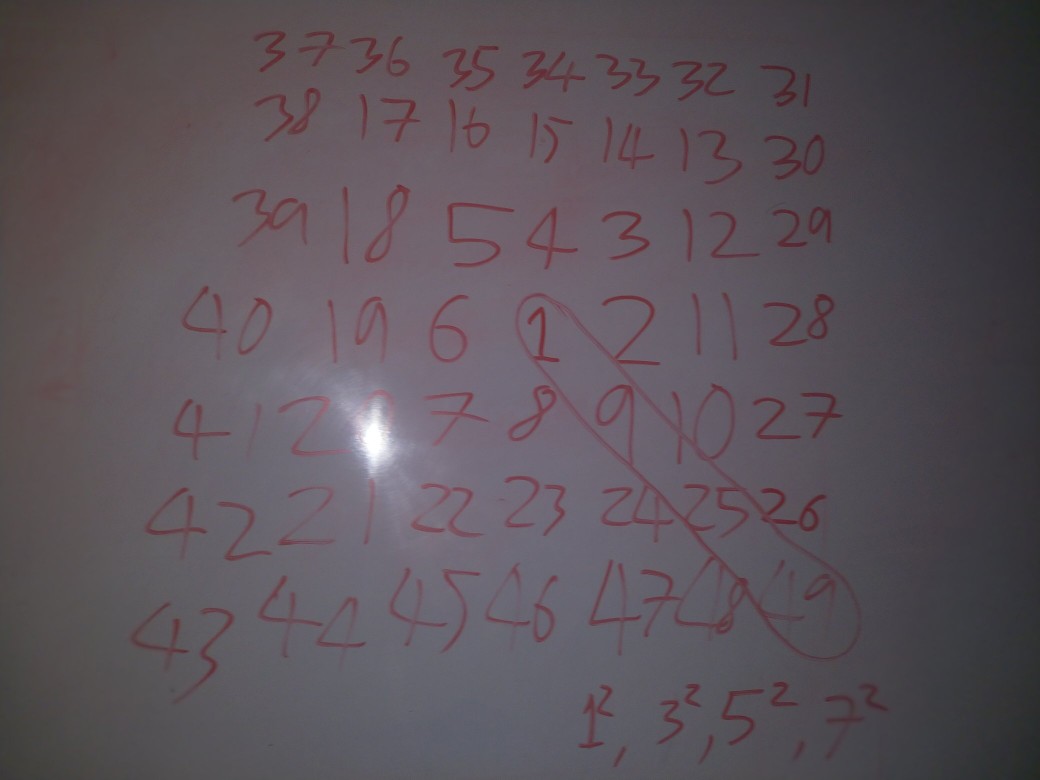 37 36 35 34 33 32 31
38 17 16 15 14 13 30
39 18 5 4 3 12 29
40 19 6 1 2 11 28
41 20 7 8 9 10 27
42 21 22 23 24 25 26
43 44 45 46 47 48 49
1², 3², 5², 7²